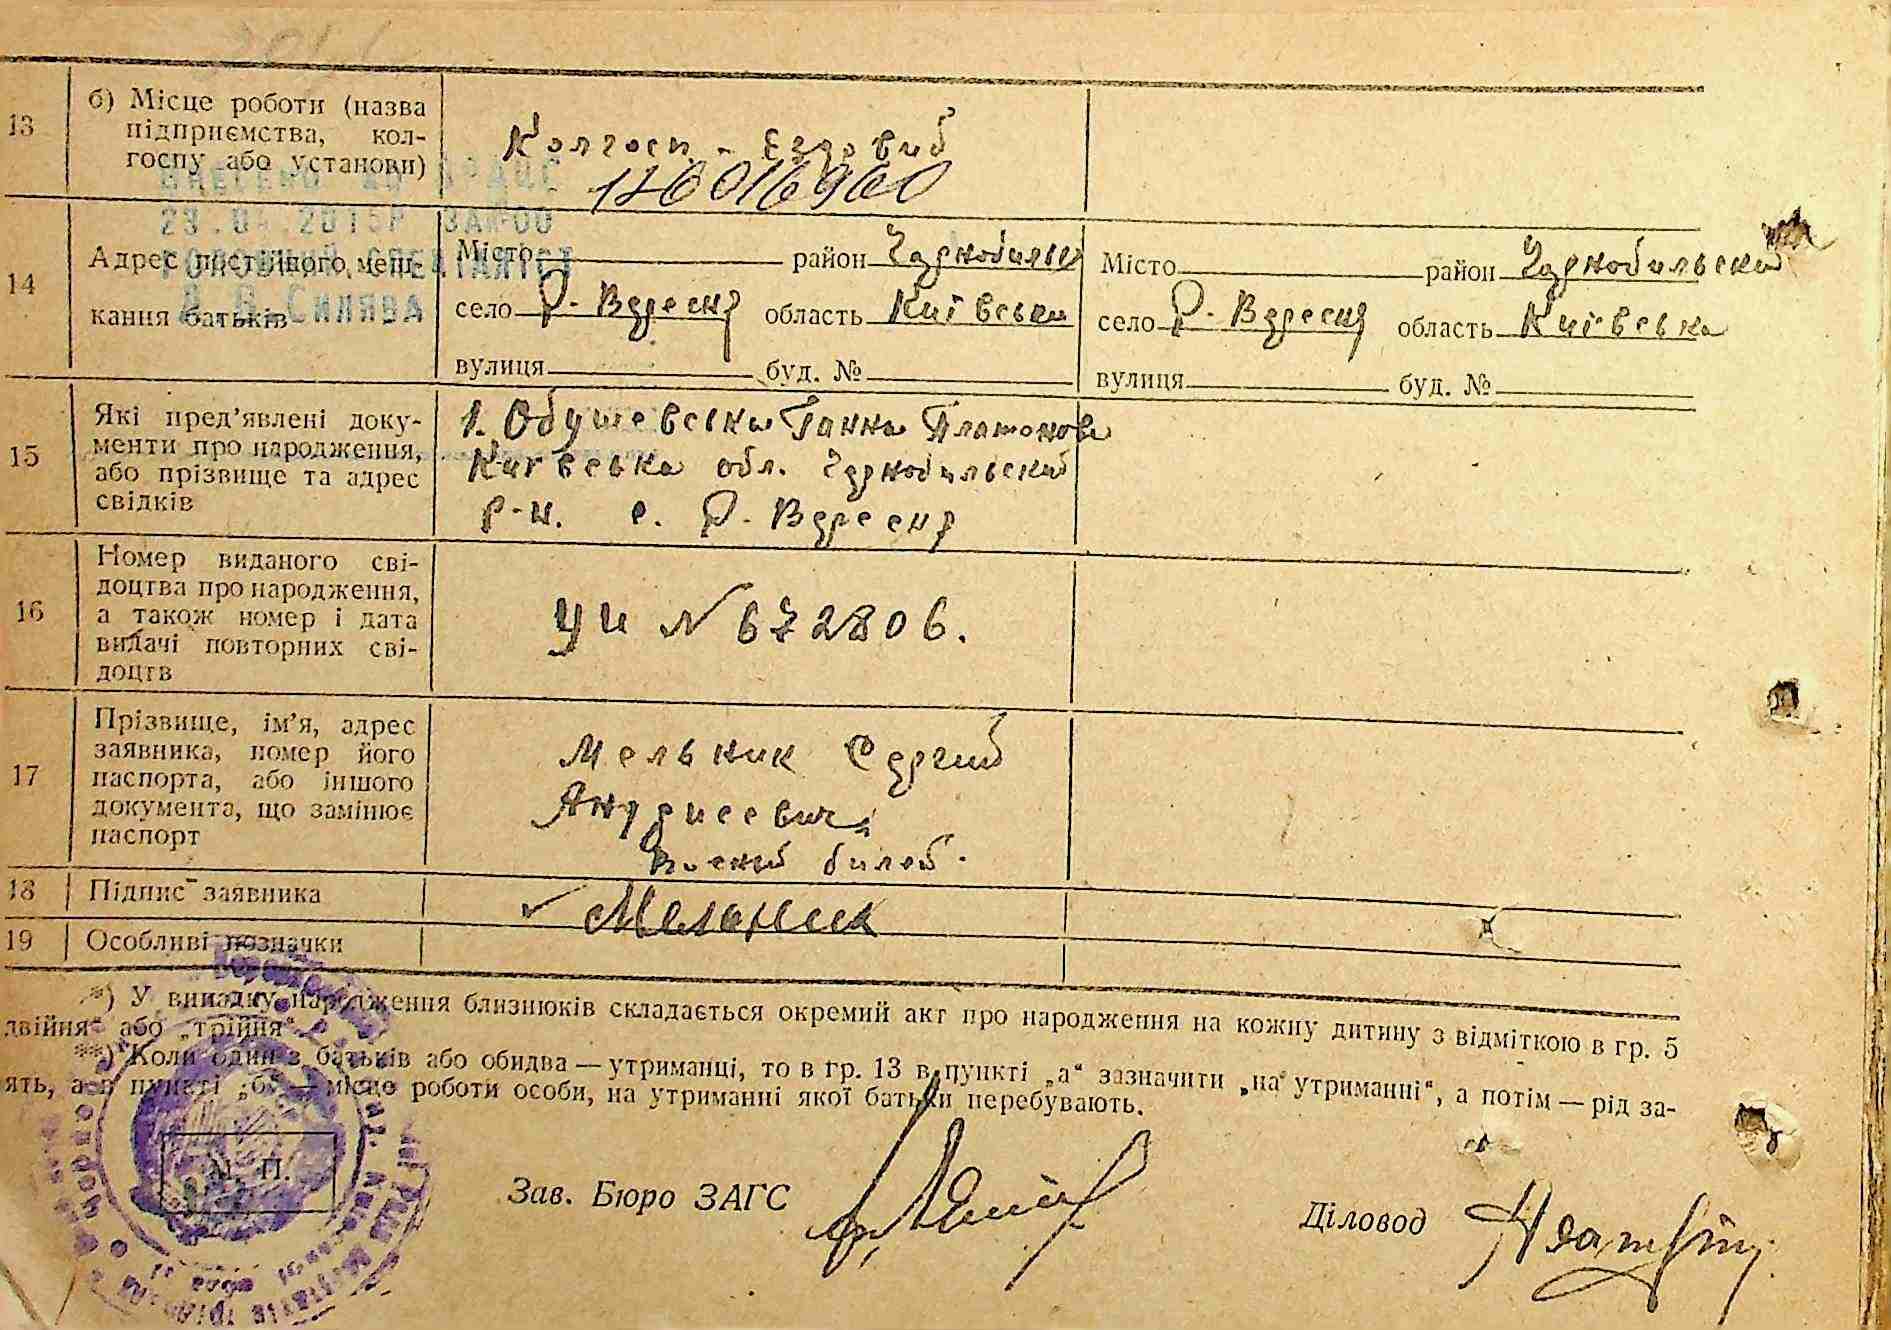 13
б) Місце роботи (назва
підприємства, кол-
госпу або установи)
Колгосп - Ездовий
ВНЕСЕНО ДО ДРАЦС
23.04.2015Р ЗА
ГОЛОВНИЙ СПЕЦІАЛІСТ
Синява
14
Адрес постійного меш-
кання батьків
Місто район Чорнобильс
село Р. Вересня область Київська
вулиця буд. №
Місто район Чорнобильский
село Р. Вересня область Київська
вулиця буд. №
15
Які пред'явлені доку-
менти про народження,
або прізвище та адрес
свідків
1. Обушевська Ганна Платонова
Київська обл. Чорнобильский
р-н. с. Р. Вересня
16
Номер виданого сві-
доцтва про народження,
а також номер і дата
видачі повторних сві-
доцтв
УИ № 672806.
17
Прізвище, ім'я, адрес
заявника, номер його
паспорта, або іншого
документа, що замінює
паспорт
Мельник Сергий
Андриевич
Воений билет.
18
Підпис заявника
Мельник
19
Особливі позначки
*) У випадку народження близнюків складається окремий акт про народження на кожну дитину з відміткою в гр. 5
двійня“ або „трійня“.
**) Коли один з батьків або обидва — утриманці, то в гр. 13 в пункті „а“ зазначити „на утриманні“, а потім — рід за-
ять, а в пункті „б“ — місце роботи особи, на утриманні якої батьки перебувають.
М. П.
Зав. Бюро ЗАГС
Діловод